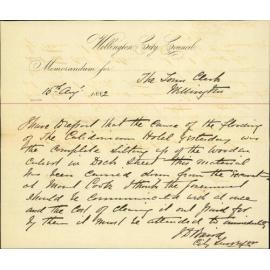 Wellington City Council
Memorandum for
The Town Clerk
15th Augt 1892
Wellington
I have to report that the cause of the flooding
of the Caledonian Hotel yesterday was
the complete silting up of the wooden
culvert in Dock Street this material
has been carried down from the
at Mount Cook I think the government
should be communicated with at once
and the cost of clearing it out paid for
by them it must be attended to immediately
City Surveyor